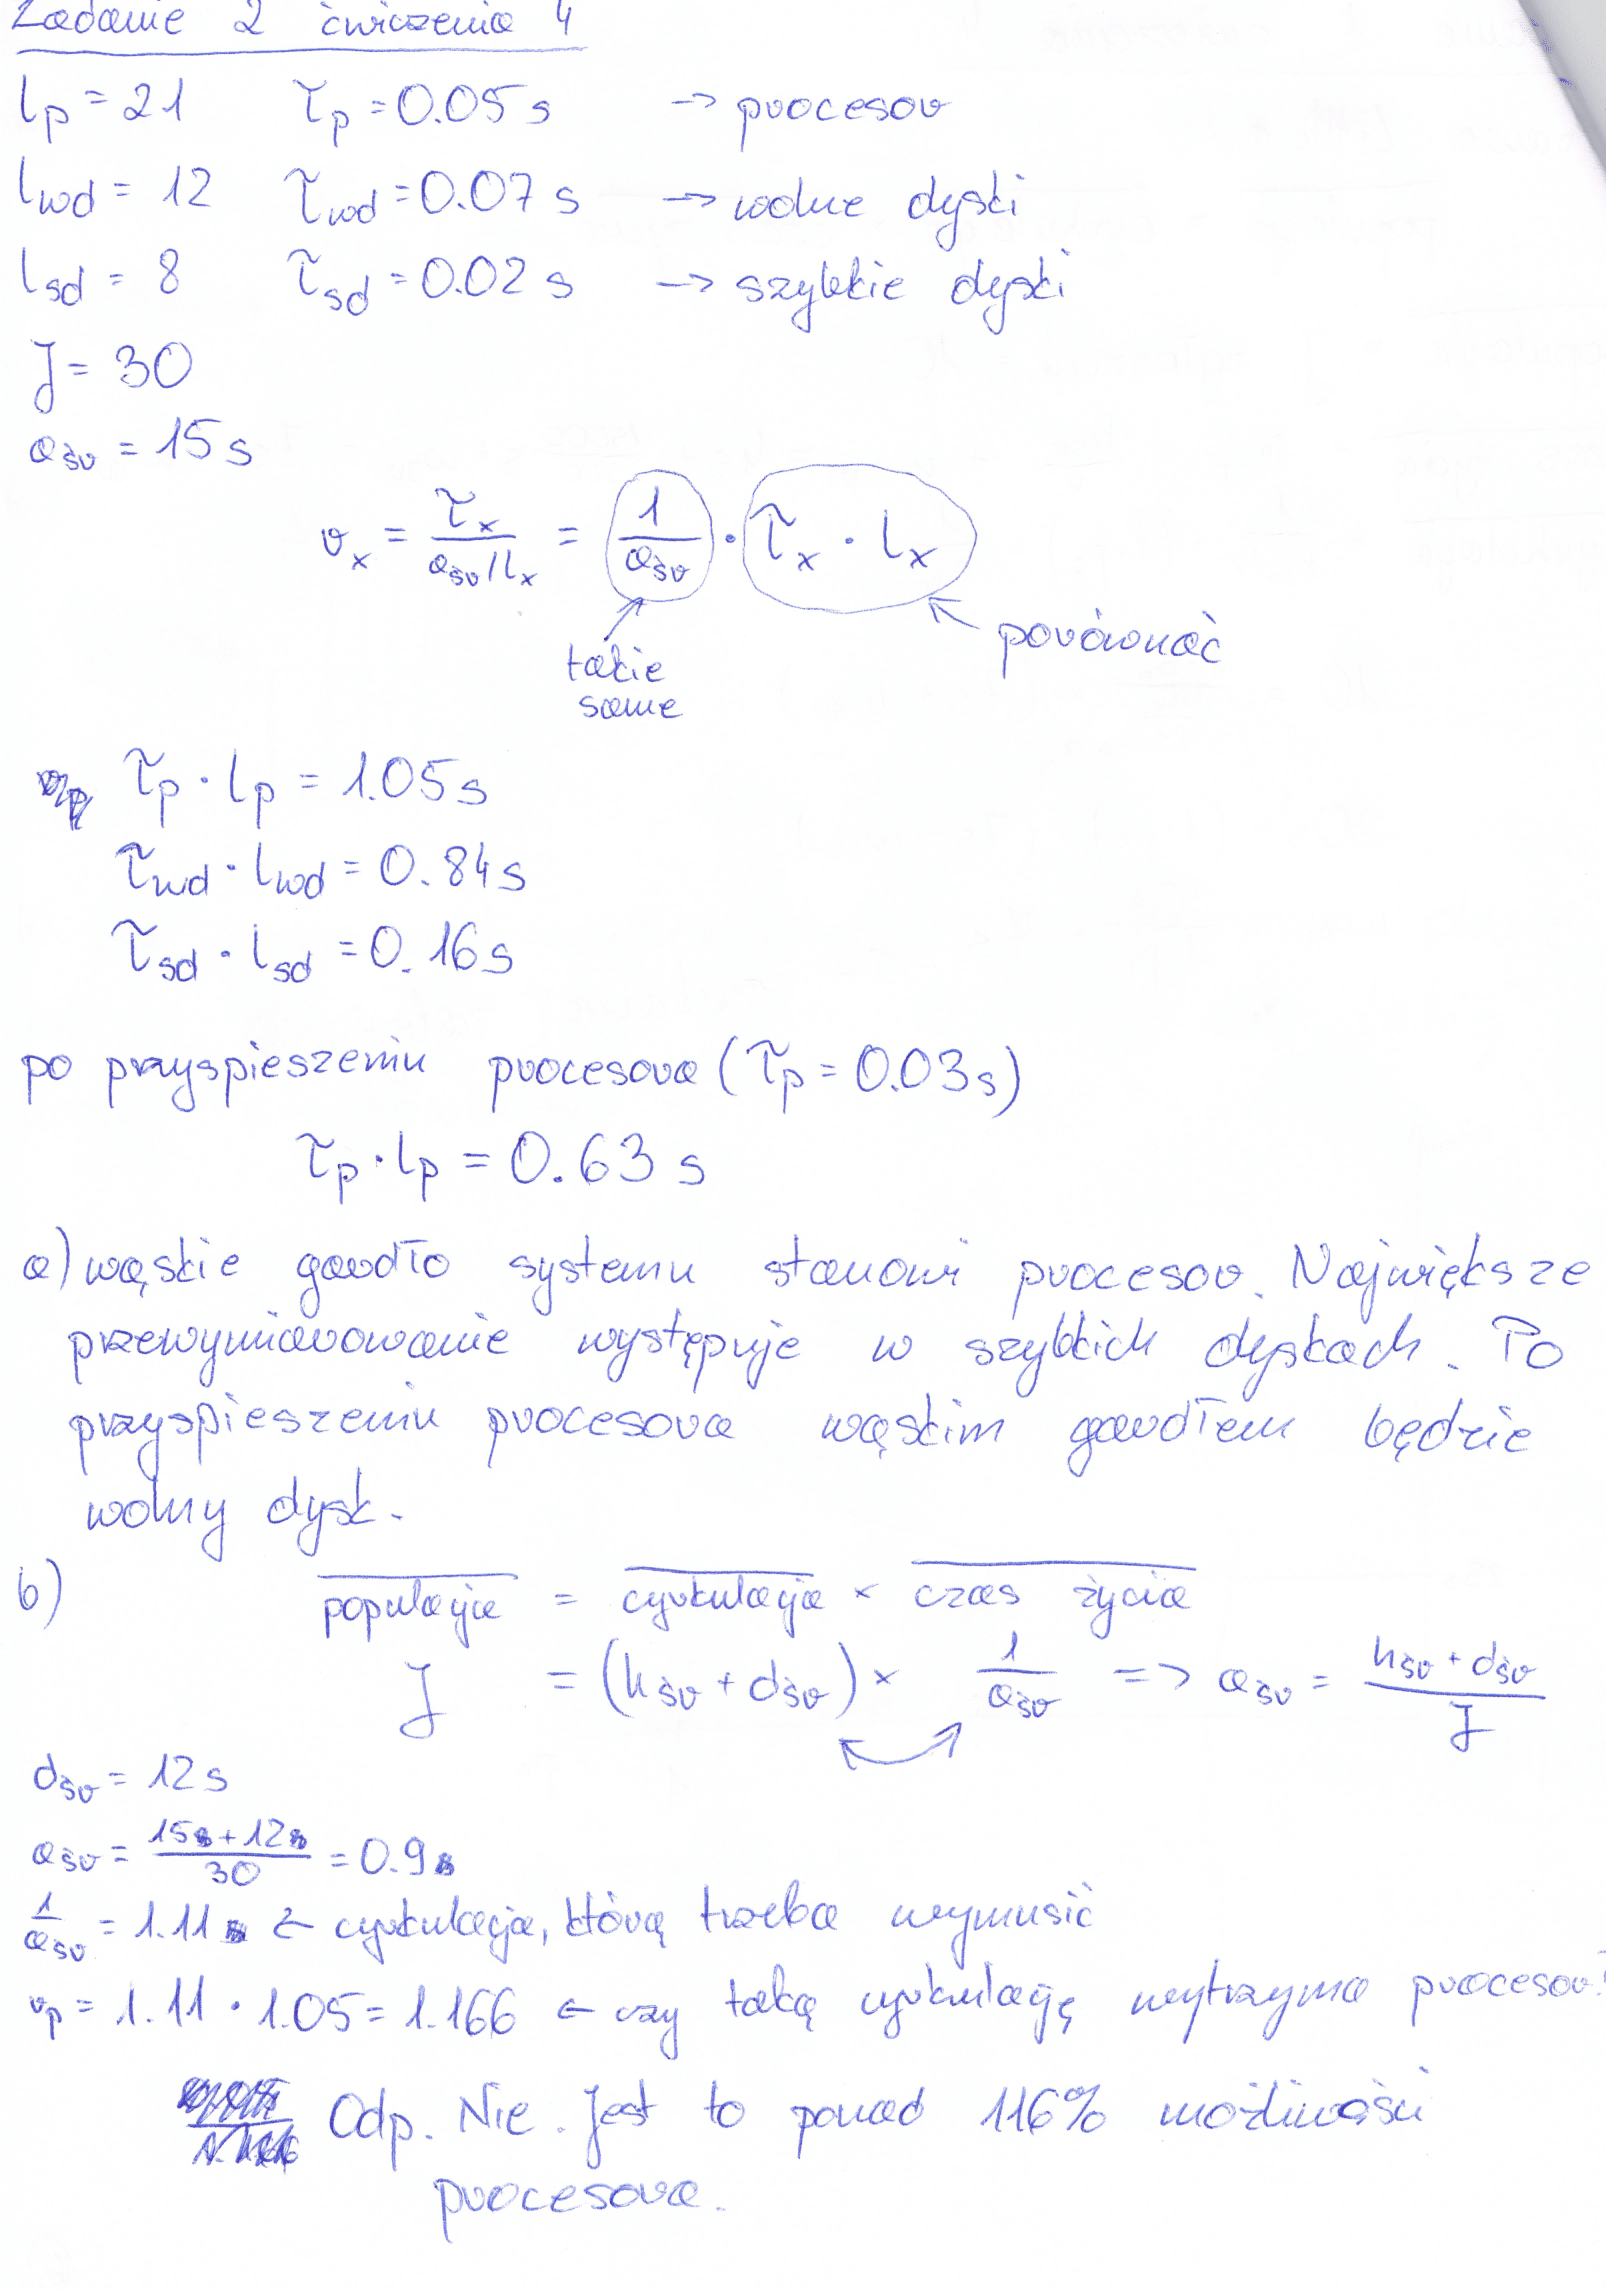 Zadanie 2 ćwiczenia 4
lp = 21 τp = 0.05 s → procesor
lwd = 12 τwd = 0.07 s → wolne dyski
lsd = 8 τsd = 0.02 s → szybkie dyski
J = 30
aśr = 15 s
vx = τx / (aśr/lx) = 1/aśr · τx · lx
takie same
porównać
τp · lp = 1.05 s
τwd · lwd = 0.84 s
τsd · lsd = 0.16 s
po przyspieszeniu procesora (τp = 0.03 s)
τp · lp = 0.63 s
a) wąskie gardło systemu stanowi procesor. Największe
przewymiarowanie występuje w szybkich dyskach. Po
przyspieszeniu procesora wąskim gardłem będzie
wolny dysk.
b) populacja = cyrkulacja × czas życia
J = (hśr + dśr) × 1/aśr => aśr = (hśr + dśr)/J
dśr = 12 s
aśr = (15 + 12)/30 = 0.9
1/aśr = 1.11 ← cyrkulacja, którą trzeba wymusić
vp = 1.11 · 1.05 = 1.166 ← czy taką cyrkulację wytrzyma procesor?
Odp. Nie. Jest to ponad 116% możliwości
procesora.